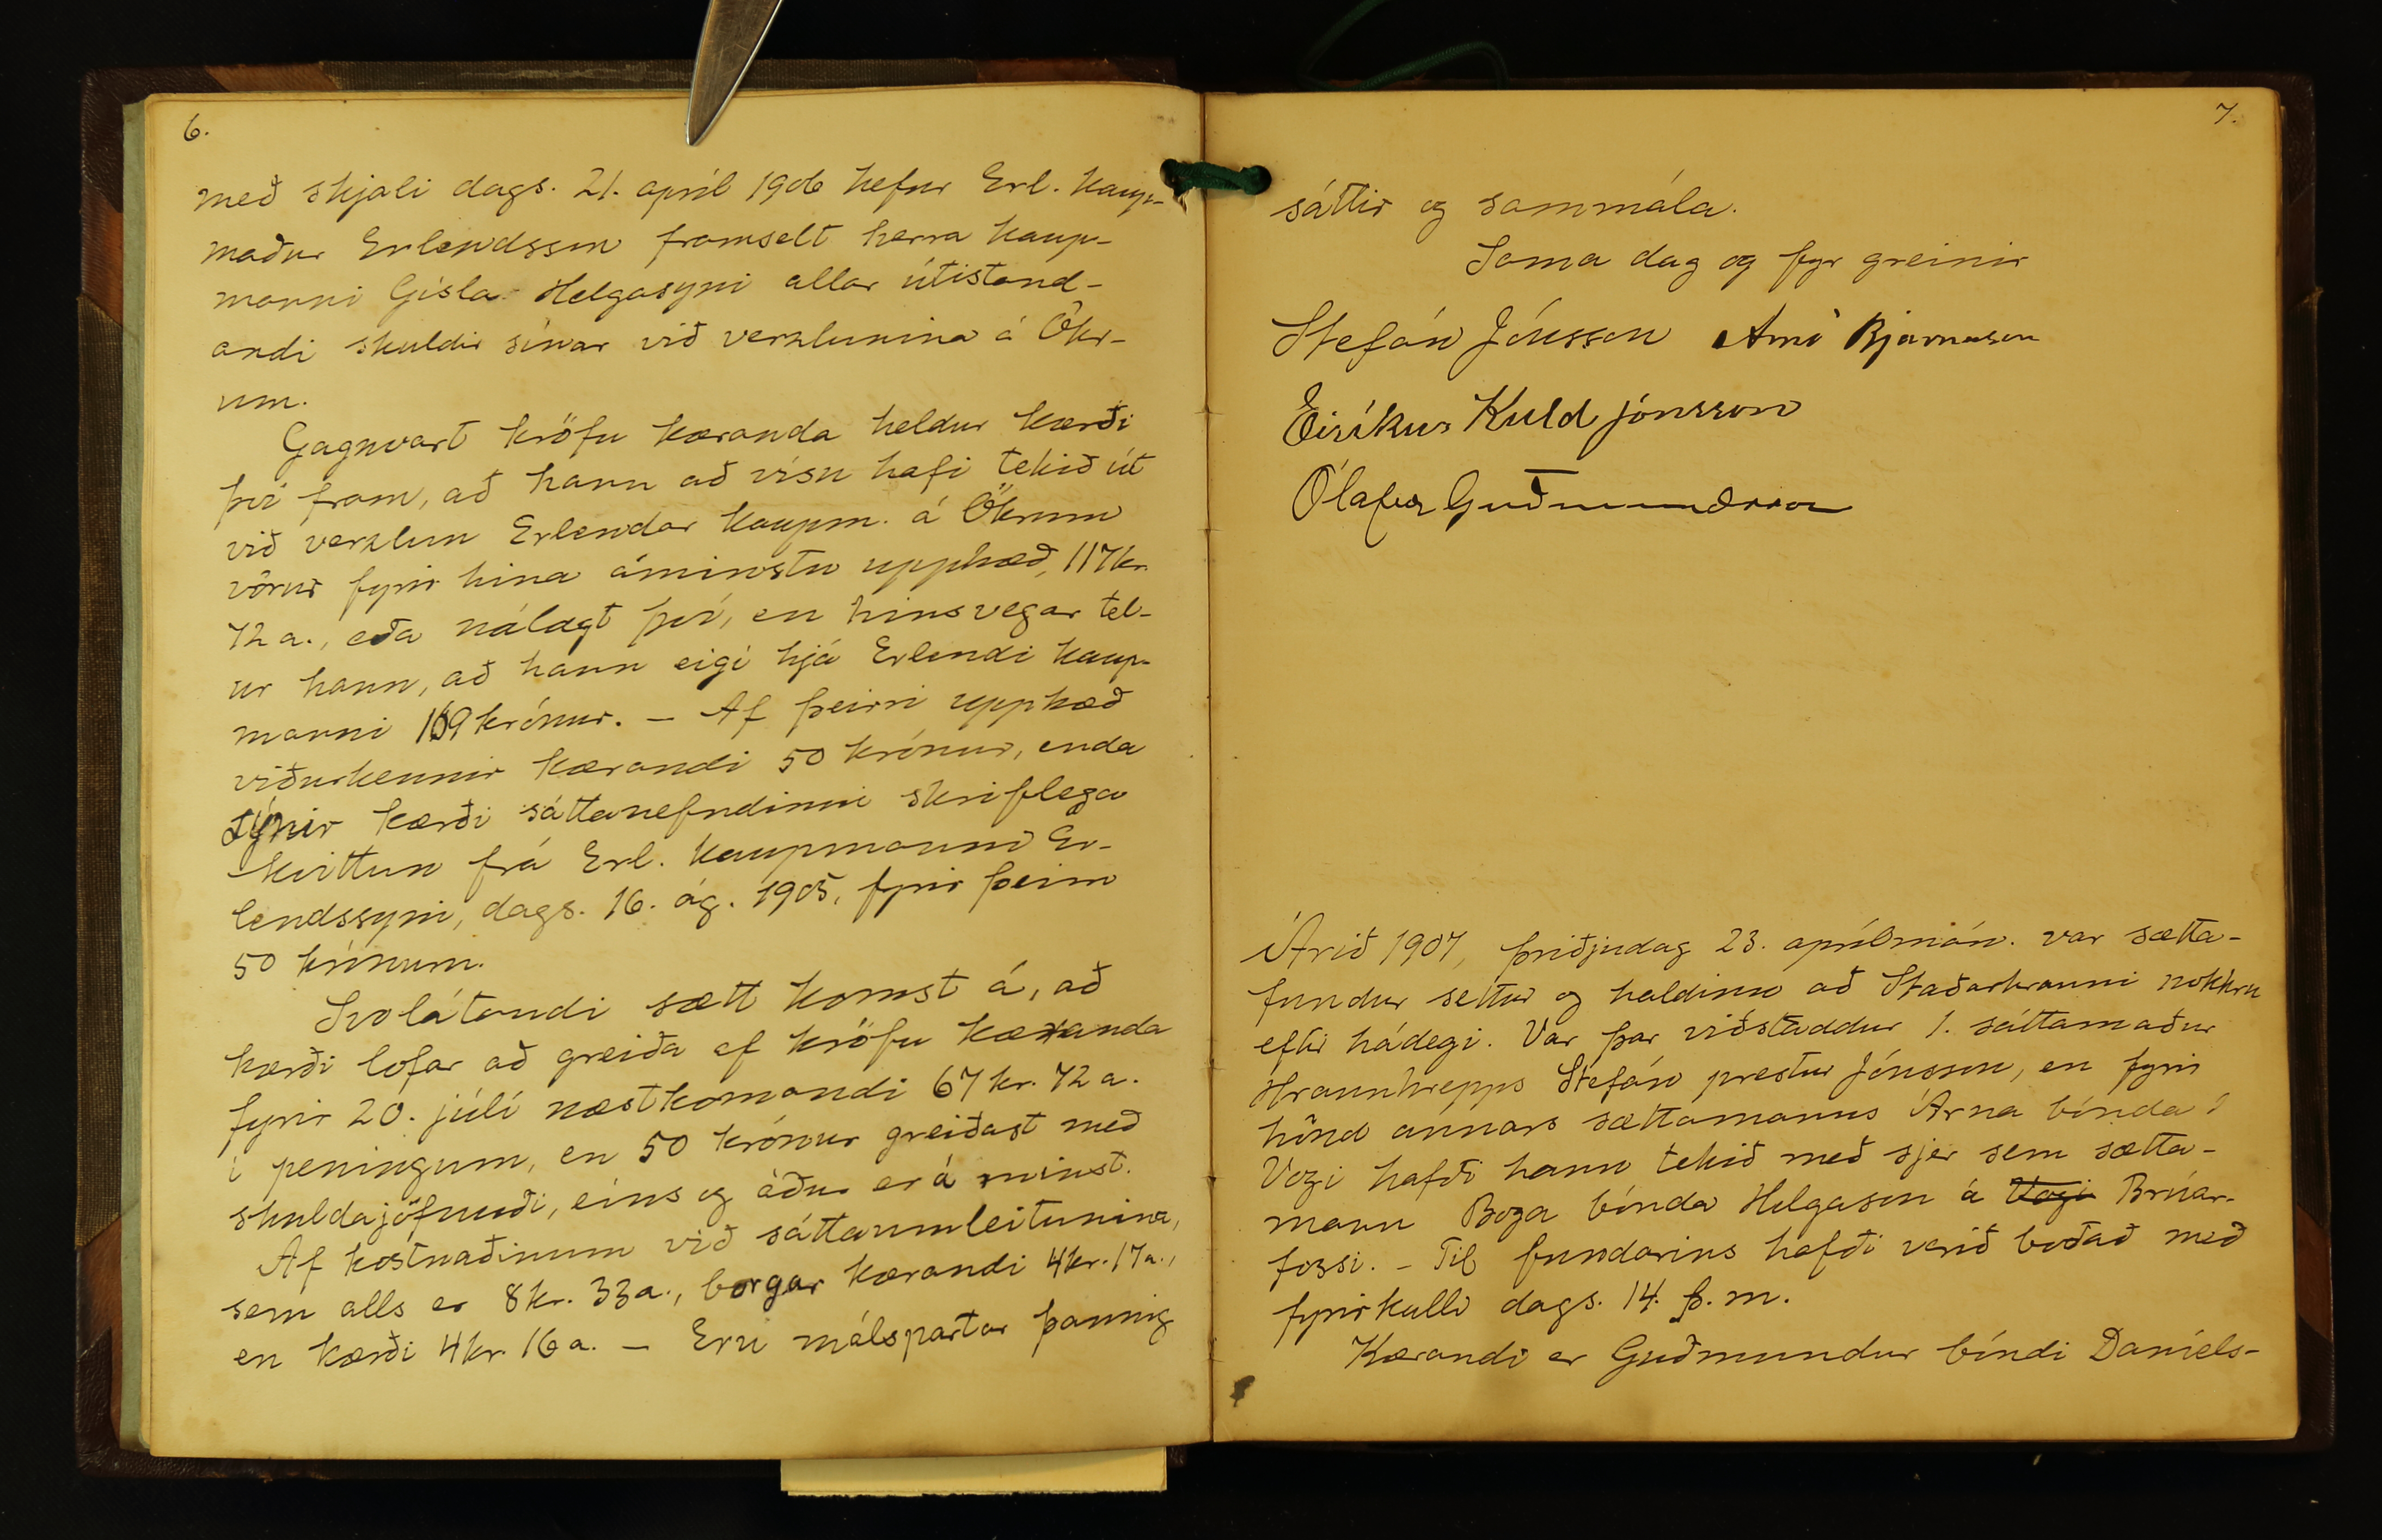 6.
með skjali dags. 21. apríl 1906 hefur Erl. kaup-
maður Erlendsson framselt herra kaup-
manni Gísla Helgasyni allar útistand-
andi skuldir sínar við verzlunina á Ökr-
um.
Gagnvart kröfu kæranda heldur kærði
því fram, að hann að vísu hafi tekið út
við verzlun Erlendar kaupm. á Ökrum
vörur fyrir hina áminstu upphæð, 117 kr.
72 a., eða nálægt því, en hinsvegar tel-
ur hann, að hann eigi hjá Erlendi kaup-
manni 169 krónur. – Af þeirri upphæð
viðurkennir kærandi 50 krónur, enda
sýnir kærði sáttanefndinni skriflega
kvittun frá Erl. kaupmanni Er-
lendssyni, dags. 16. ág. 1905, fyrir þeim
50 krónum.
Svolátandi sætt komst á, að
kærði lofar að greiða af kröfu kæranda
fyrir 20. júlí næstkomandi 67 kr. 72 a.
í peningum, en 50 krónur greiðast með
skuldajöfnuði, eins og áður er á minst.
Af kostnaðinum við sáttaumleitunina,
sem alls er 8 kr. 33 a., borgar kærandi 4 kr. 17 a.,
en kærði 4 kr. 16 a. – Eru málspartar þannig
7.
sáttir og sammála.
Sama dag og fyr greinir
Stefán Jónsson Arni Bjarnason
Eiríkur Kuld Jónsson
Ólafur Guðmundsson
Árið 1907, þriðjudag 23. aprílmán. var sætta-
fundur settur og haldinn að Staðarhrauni nokkru
eftir hádegi. Var þar viðstaddur 1. sáttamaður
Hraunhrepps Stefán prestur Jónsson, en fyrir
hönd annars sættamanns Árna bónda í
Vogi hafði hann tekið með sjer sem sætta-
mann Boga bónda Helgason á Vogi Brúar-
fossi. – Til fundarins hafði verið boðað með
fyrirkalli dags. 14. þ. m.
Kærandi er Guðmundur bóndi Daníels-